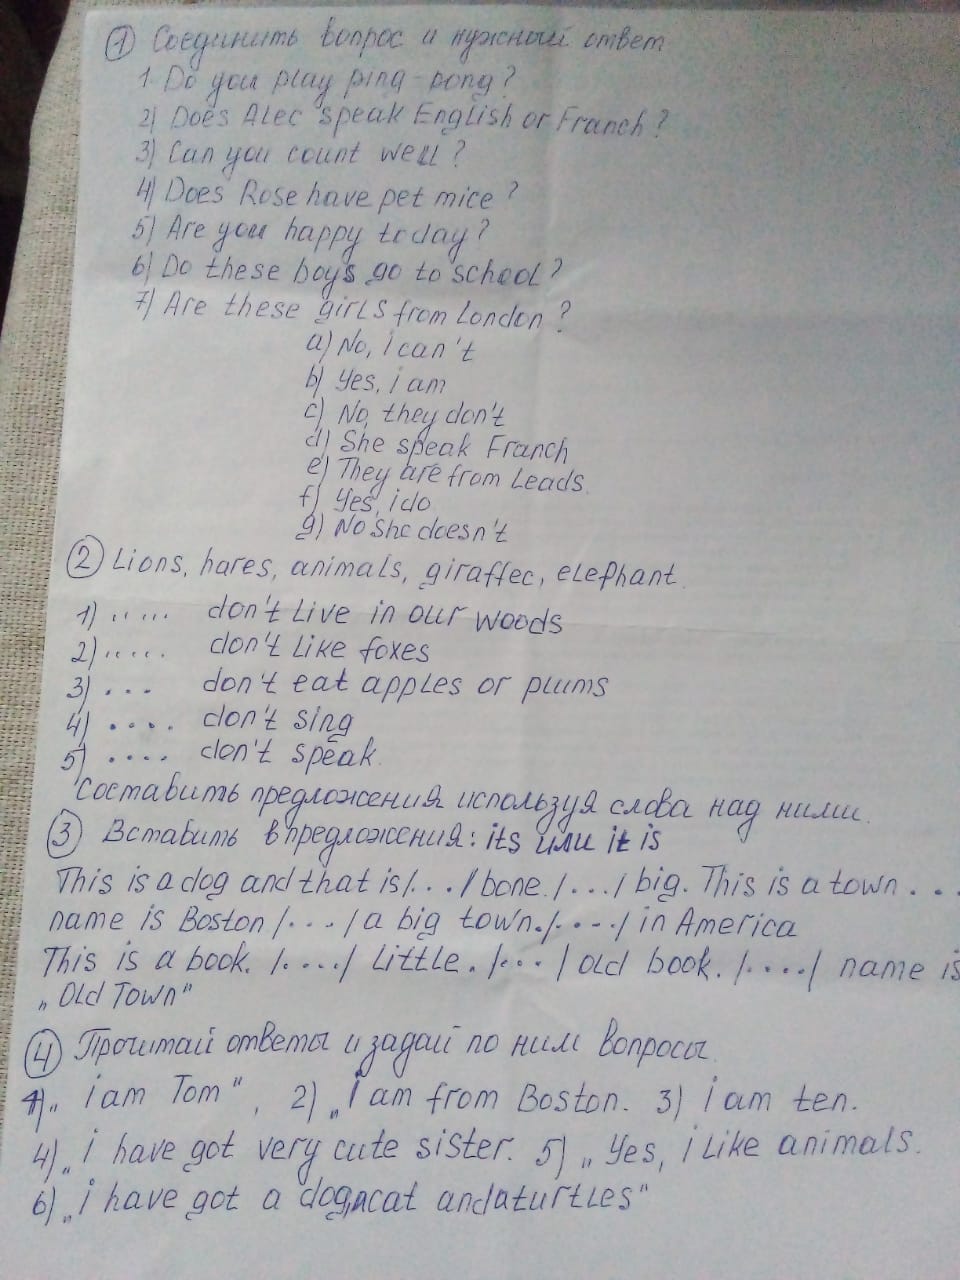 ① Соединить вопрос и нужный ответ
1. Do you play ping-pong?
2) Does Alec speak English or Franch?
3) Can you count well?
4) Does Rose have pet mice?
5) Are you happy today?
6) Do these boys go to school?
7) Are these girls from London?
a) No, i can't
b) Yes, i am
c) No, they don't
d) She speak Franch
e) They are from Leads.
f) Yes, i do
g) No she doesn't
② Lions, hares, animals, giraffec, elephant.
1) ..... don't live in our woods
2) ..... don't like foxes
3) ... don't eat apples or plums
4) .... don't sing
5) .... don't speak.
Составить предложения используя слова над ними.
③ Вставить в предложения: its или it is
This is a dog and that is /. . ./ bone. /. . ./ big. This is a town . . .
name is Boston /. . ./ a big town. /. . . ./ in America
This is a book. /. . . ./ Little. /. . . / old book. /. . . ./ name is
„Old Town"
④ Прочитай ответы и задай по ним вопросы.
1) „ i am Tom", 2) „ i am from Boston. 3) i am ten.
4) „ i have got very cute sister. 5) „ Yes, i like animals.
6) „ i have got a dog, a cat and a turtles"